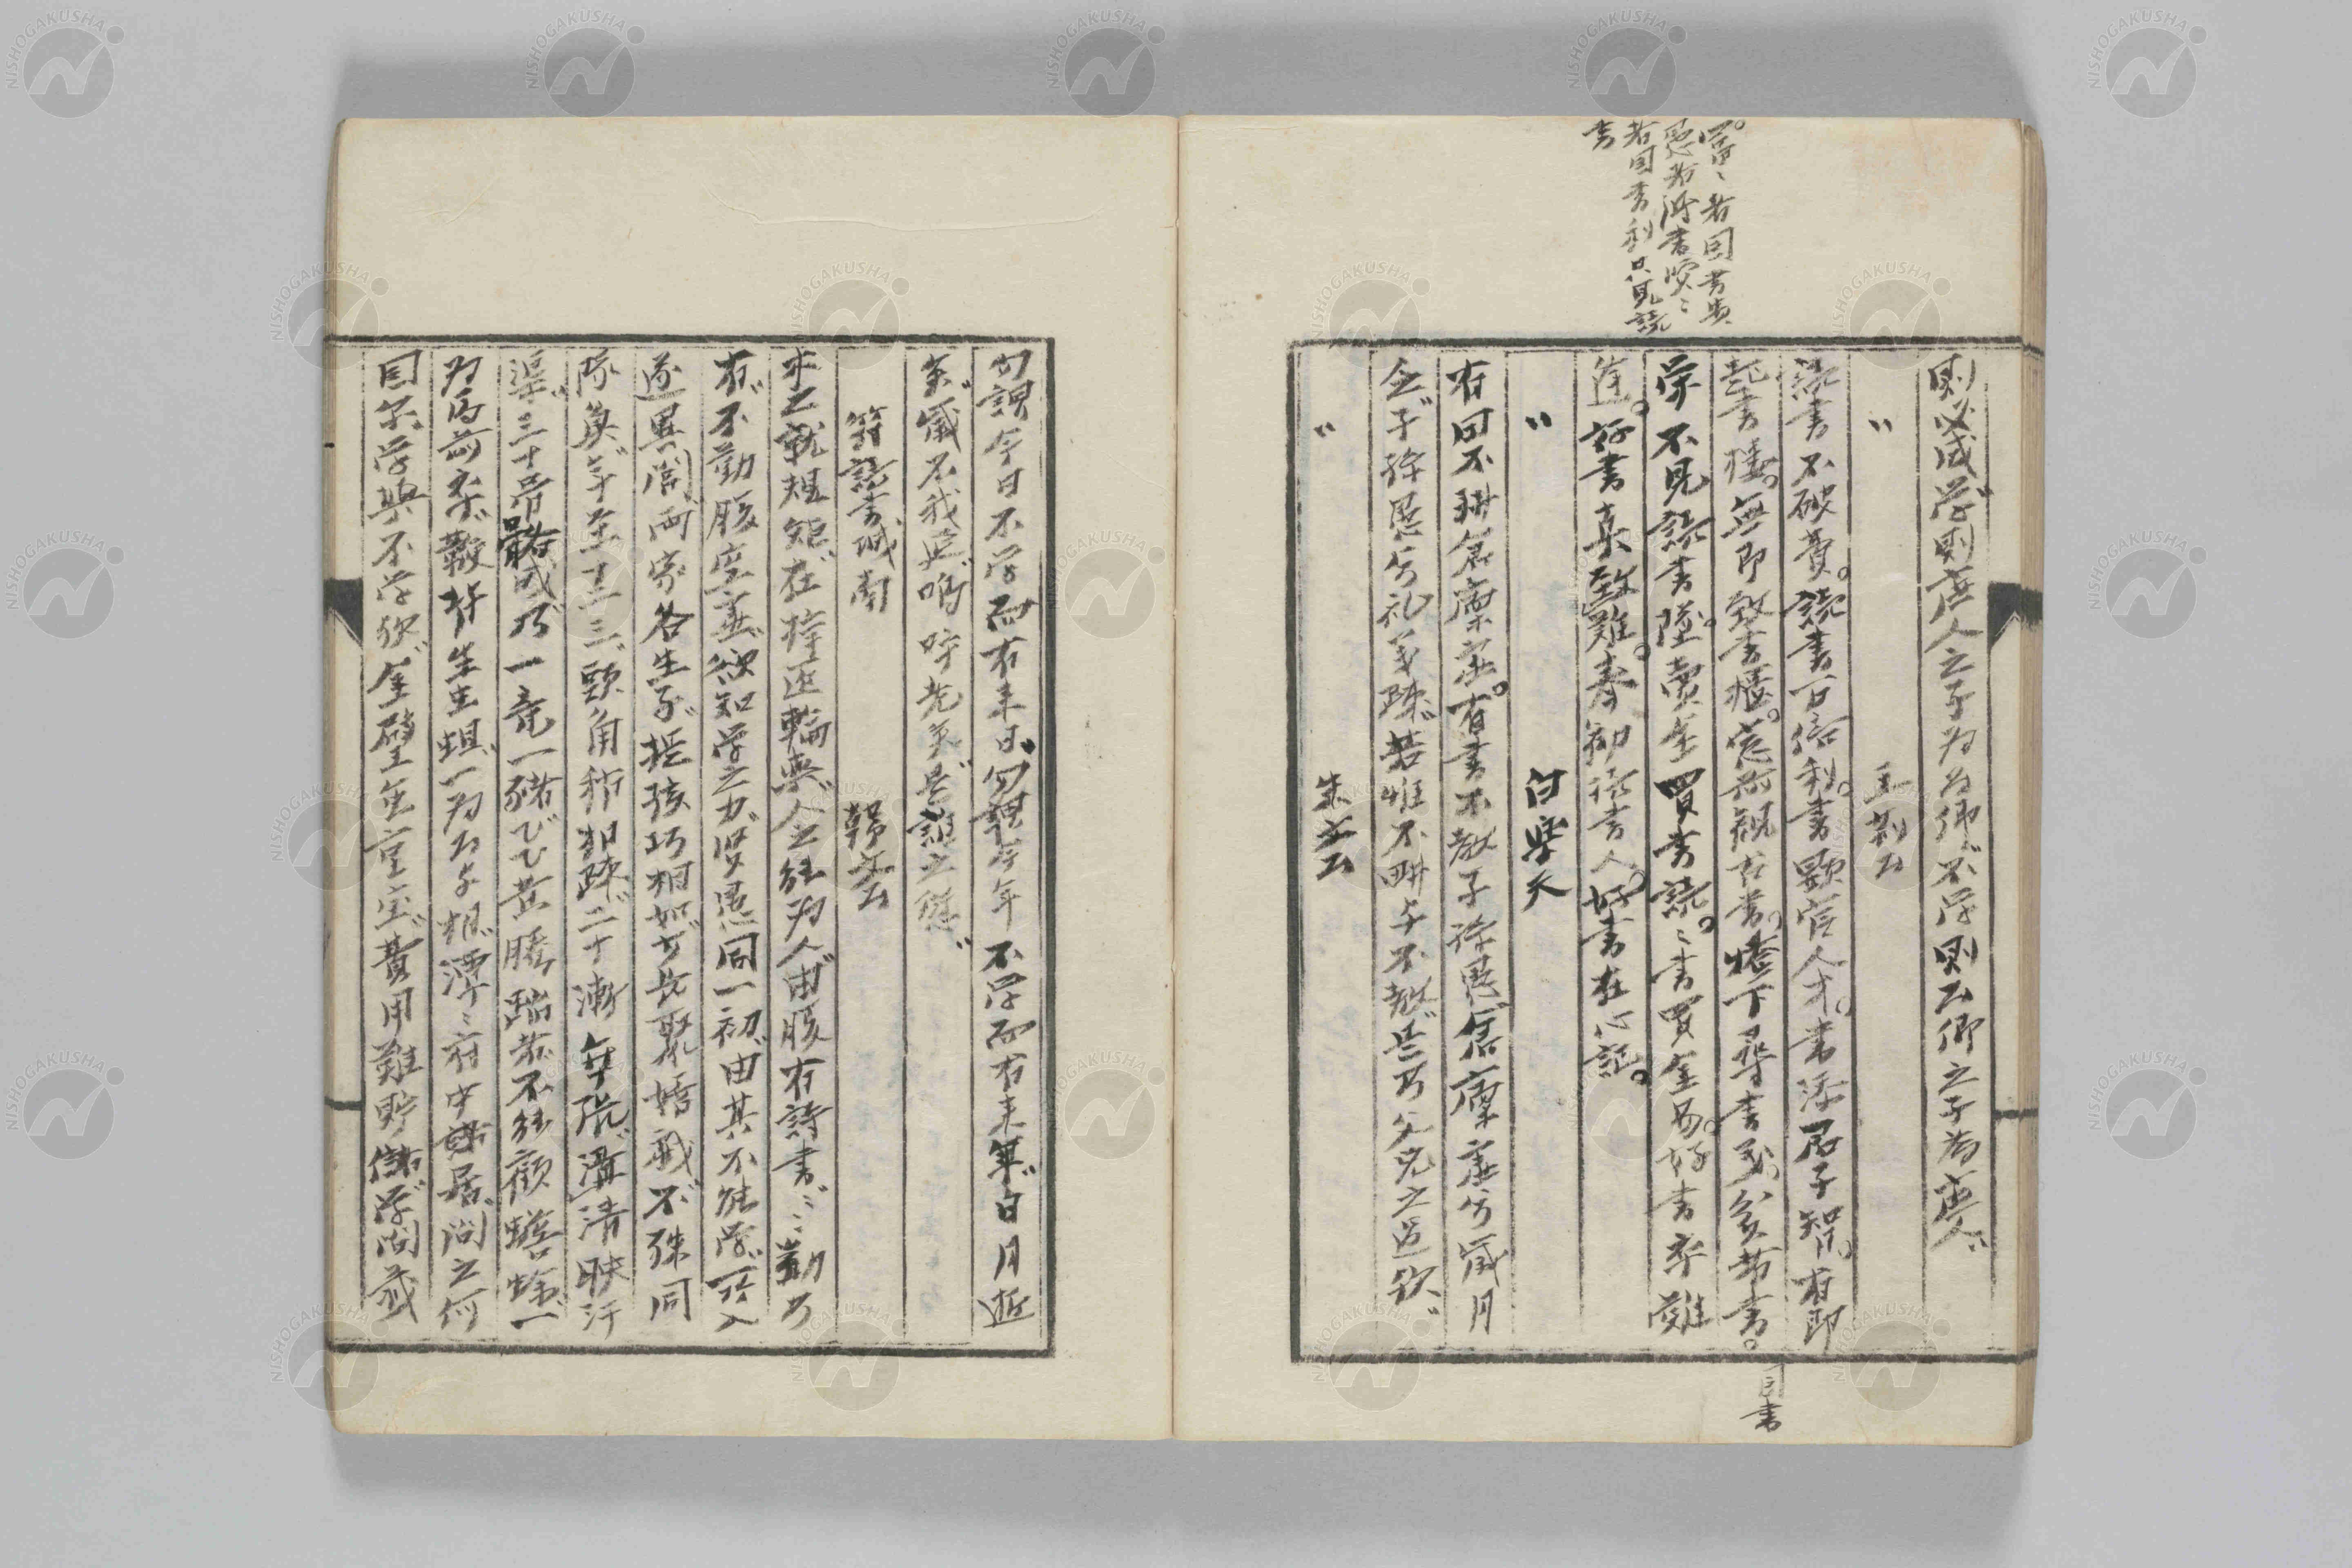 富、者因書貴
愚者得書賢、
者因書利只見読
書
則必成学則庶人之子為公卿不学則公卿之子為庶人
〃 王荊公
読書不破費。読書万倍利。書顕官人才。書添君子智。有即
起書楼。無即致書櫃。窓前観古書。燈下尋書義。貧者書。
因書
栄不見読書墜。売金買書読。、書買金易。好書卒難
逢。好書真致難。奉勧読書人。好書在心記。
〃 白楽天
有田不耕倉廩虚。有書不教子孫愚倉廩虚兮歳月
乏子孫愚兮礼義疎若惟不耕与不教是乃父兄之過歟
〃 朱文公
勿謂今日不学而有来日勿謂今年不学而有来年日月逝
矣歳不我延嗚呼老矣是誰之愆
符読書城南 韓文公
木之就規矩在梓匠輪輿人之能為人由腹有詩書、、勤乃
有不勤腹空虚欲知学之力賢愚同一初由其不能学所入
遂異閭両家各生子提孩巧相如少長聚嬉戯不殊同
隊魚年至十二三頭角稍相疎二十漸乖張溝清映汙
渠三十骨骼成乃一竜一猪飛黄騰踏去不能顧蟾蜍一
為馬前卒鞭背生虫蛆一為公与相潭、府中居問之何
因尓学与不学歟金璧雖重宝費用難貯儲学問蔵